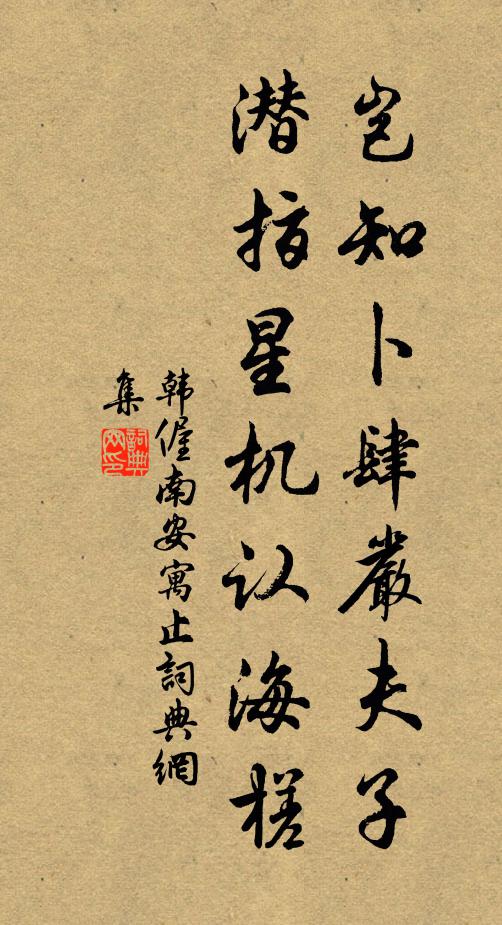 岂知卜肆嚴夫子
潜指星机认海槎
韩偓南安寓止詞典網
集
詞典
网印